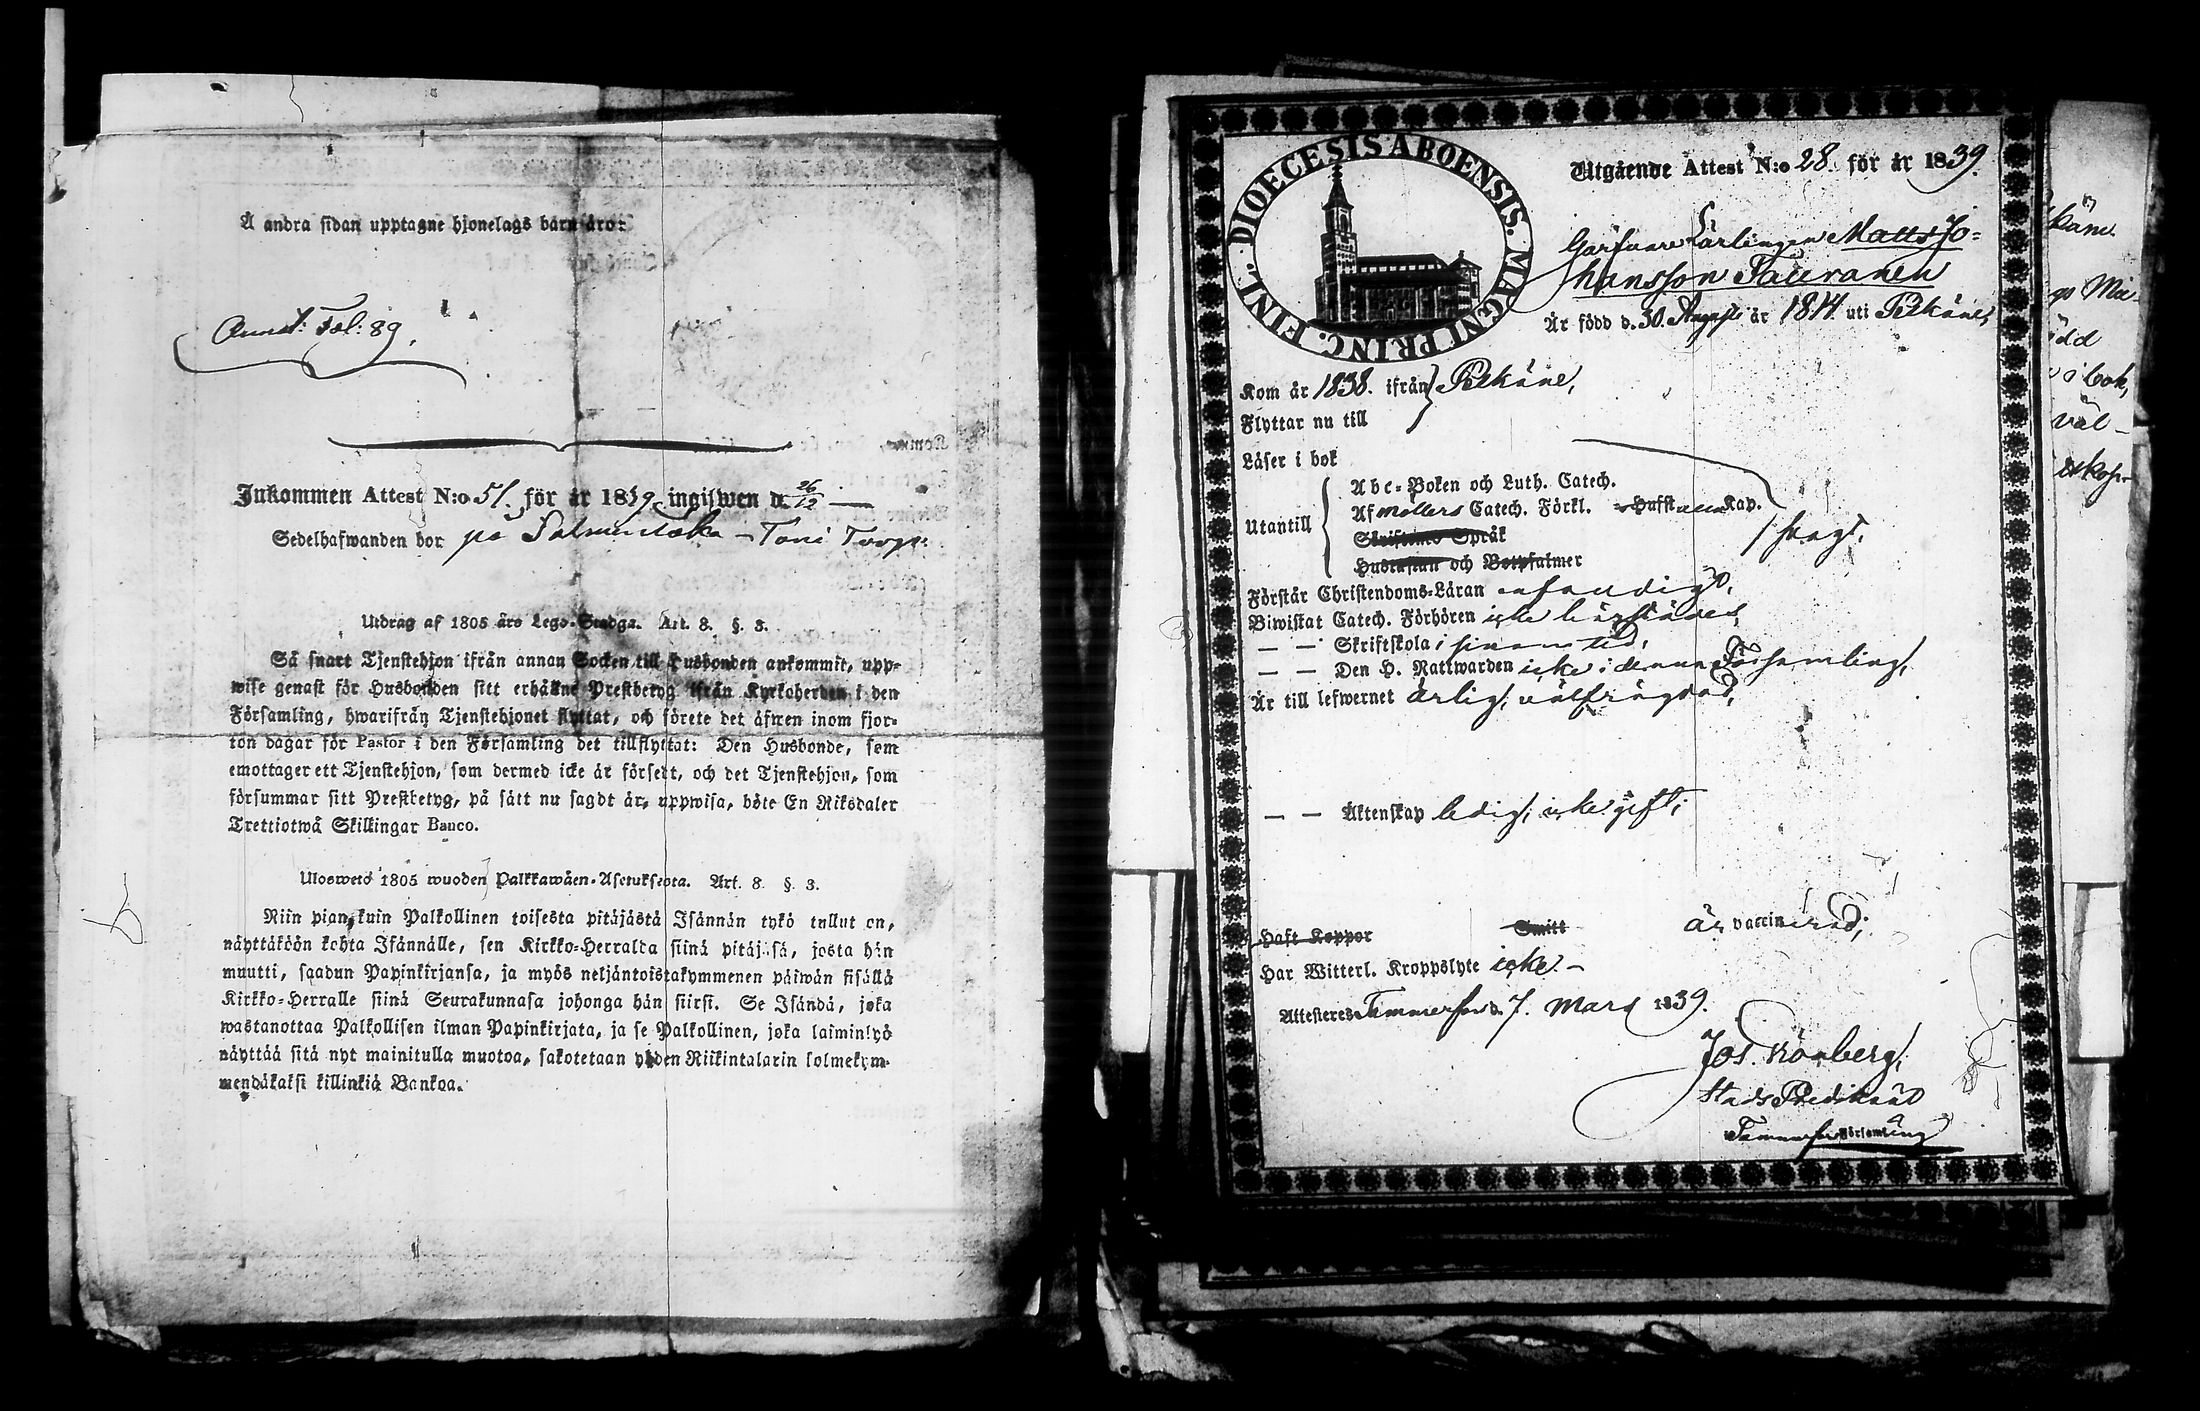 Å andra sidan upptagne hjonelags barn äro:
Annot: Fol: 89.
Inkommen Attest N:o 51. för år 1839 ingifwen d. 26/12 —
Sedelhafwanden bor på Salmentaka – Toni Torp.
Utdrag af 1805 års Lego-Stadga. Art. 8. §. 3.
Så snart Tjenstehjon ifrån annan Socken till Husbonden ankommit, upp-
wise genast för Husbonden sitt erhållne Prestbetyg ifrån Kyrkoherden i den
Församling, hwarifrån Tjenstehjonet flyttat, och förete det äfwen inom fjor-
ton dagar för Pastor i den Församling det tillflyttat: Den Husbonde, som
emottager ett Tjenstehjon, som dermed icke är försedt, och det Tjenstehjon, som
försummar sitt Prestbetyg, på sätt nu sagdt är, uppwisa, böte En Riksdaler
Trettiotwå Skillingar Banco.
Uloswetö 1805 wuoden Palkkawäen-Asetuksesta. Art. 8. §. 3.
Niin pian, kuin Palkollinen toisesta pitäjästä Isännän tykö tullut on,
näyttäköön kohta Isännälle, sen Kirkko-Herralda siinä pitäjäsä, josta hän
muutti, saadun Papinkirjansa, ja myös neljäntoistakymmenen päiwän sisällä
Kirkko-Herralle siinä Seurakunnasa johonga hän siirsi. Se Isändä, joka
wastanottaa Palkollisen ilman Papinkirjata, ja se Palkollinen, joka laiminlyö
näyttää sitä nyt mainitulla muotoa, sakotetaan yhden Riikintalarin kolmekym-
mendäkaksi killinkiä Bankoa.
DIOECESIS ABOENSIS. MAGNI PRINC. FINL.
Utgående Attest N:o 28. för år 1839.
Garfvare Lärlingen Matts Jo=
hansson Tauranen
Är född d. 30. Augusti år 1814 uti Pelkäne,
Kom år 1838. ifrån } Pelkäne,
Flyttar nu till
Läser i bok
Abc-Boken och Luth. Catech.
Utantill { Af Möllers Catech. Förkl. Hufst Kap.
Skriftenes Språk
Hustaflan och Botpsalmer
svagt,
Förstår Christendoms-Läran
Biwistat Catech. Förhören icke härstädes,
— — Skriftskola i sinom tid,
— — Den H. Nattwarden icke i denna Församling,
Är till lefwernet ärlig, välfrägdad,
— — Äktenskap ledig, icke gift;
Haft Koppor Smitt är vaccinerad;
Har Witterl. Kroppslyte icke. –
Attesteres Tammerfors d. 7. Mars 1839.
Jos. Könberg,
Stads Predikant
Tammerfors Församling